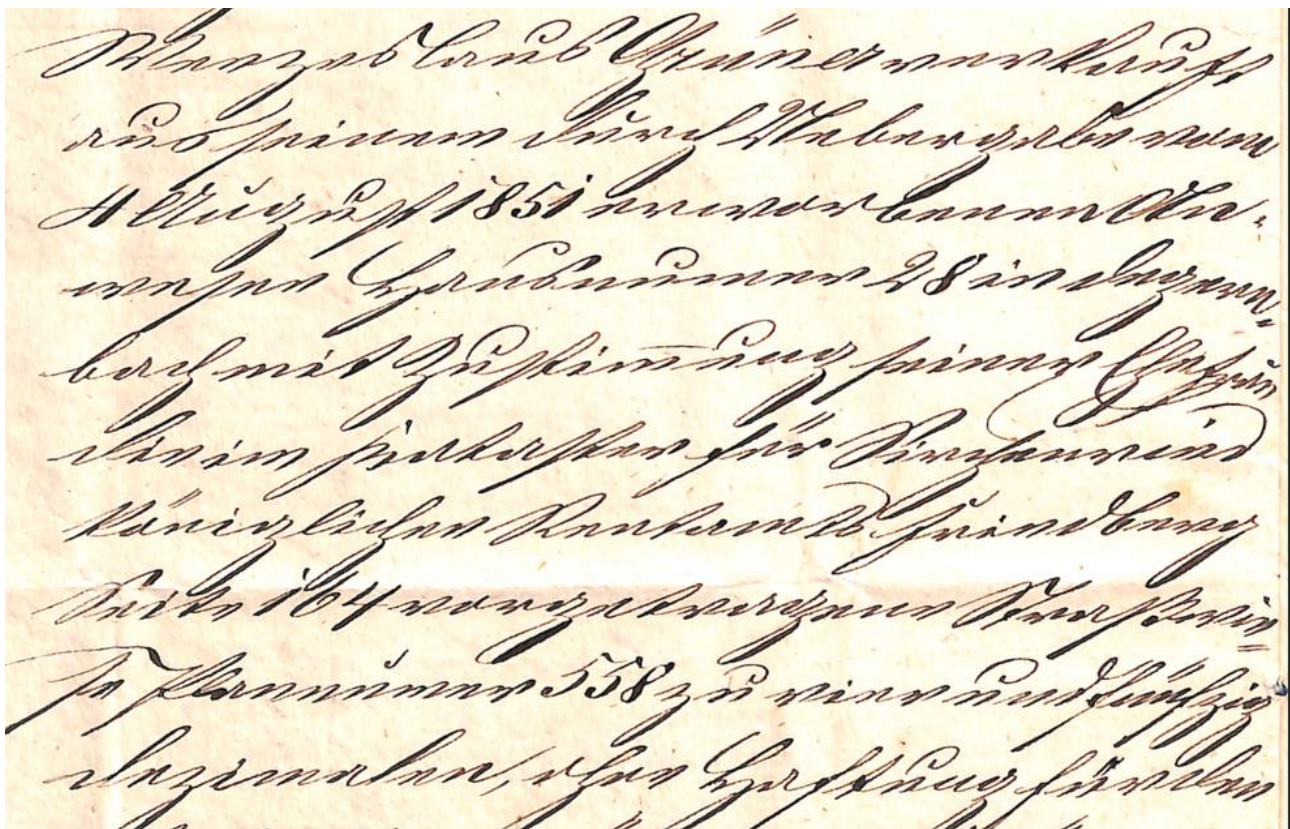 Wenzeslaus Grüner verkauft
aus seinem durch Uebergabe vom
4 August 1851 erworbenen An-
wesen Hausnumer 28 in Degern-
bach mit Zustim̅ung seiner Ehefrau
den im Kataster für
königlichen Rentamts Friedberg
Seite 164 vorgetragene
Plannumer 558 zu vierundfünfzig
Dezimalen, ohne Haftung für den